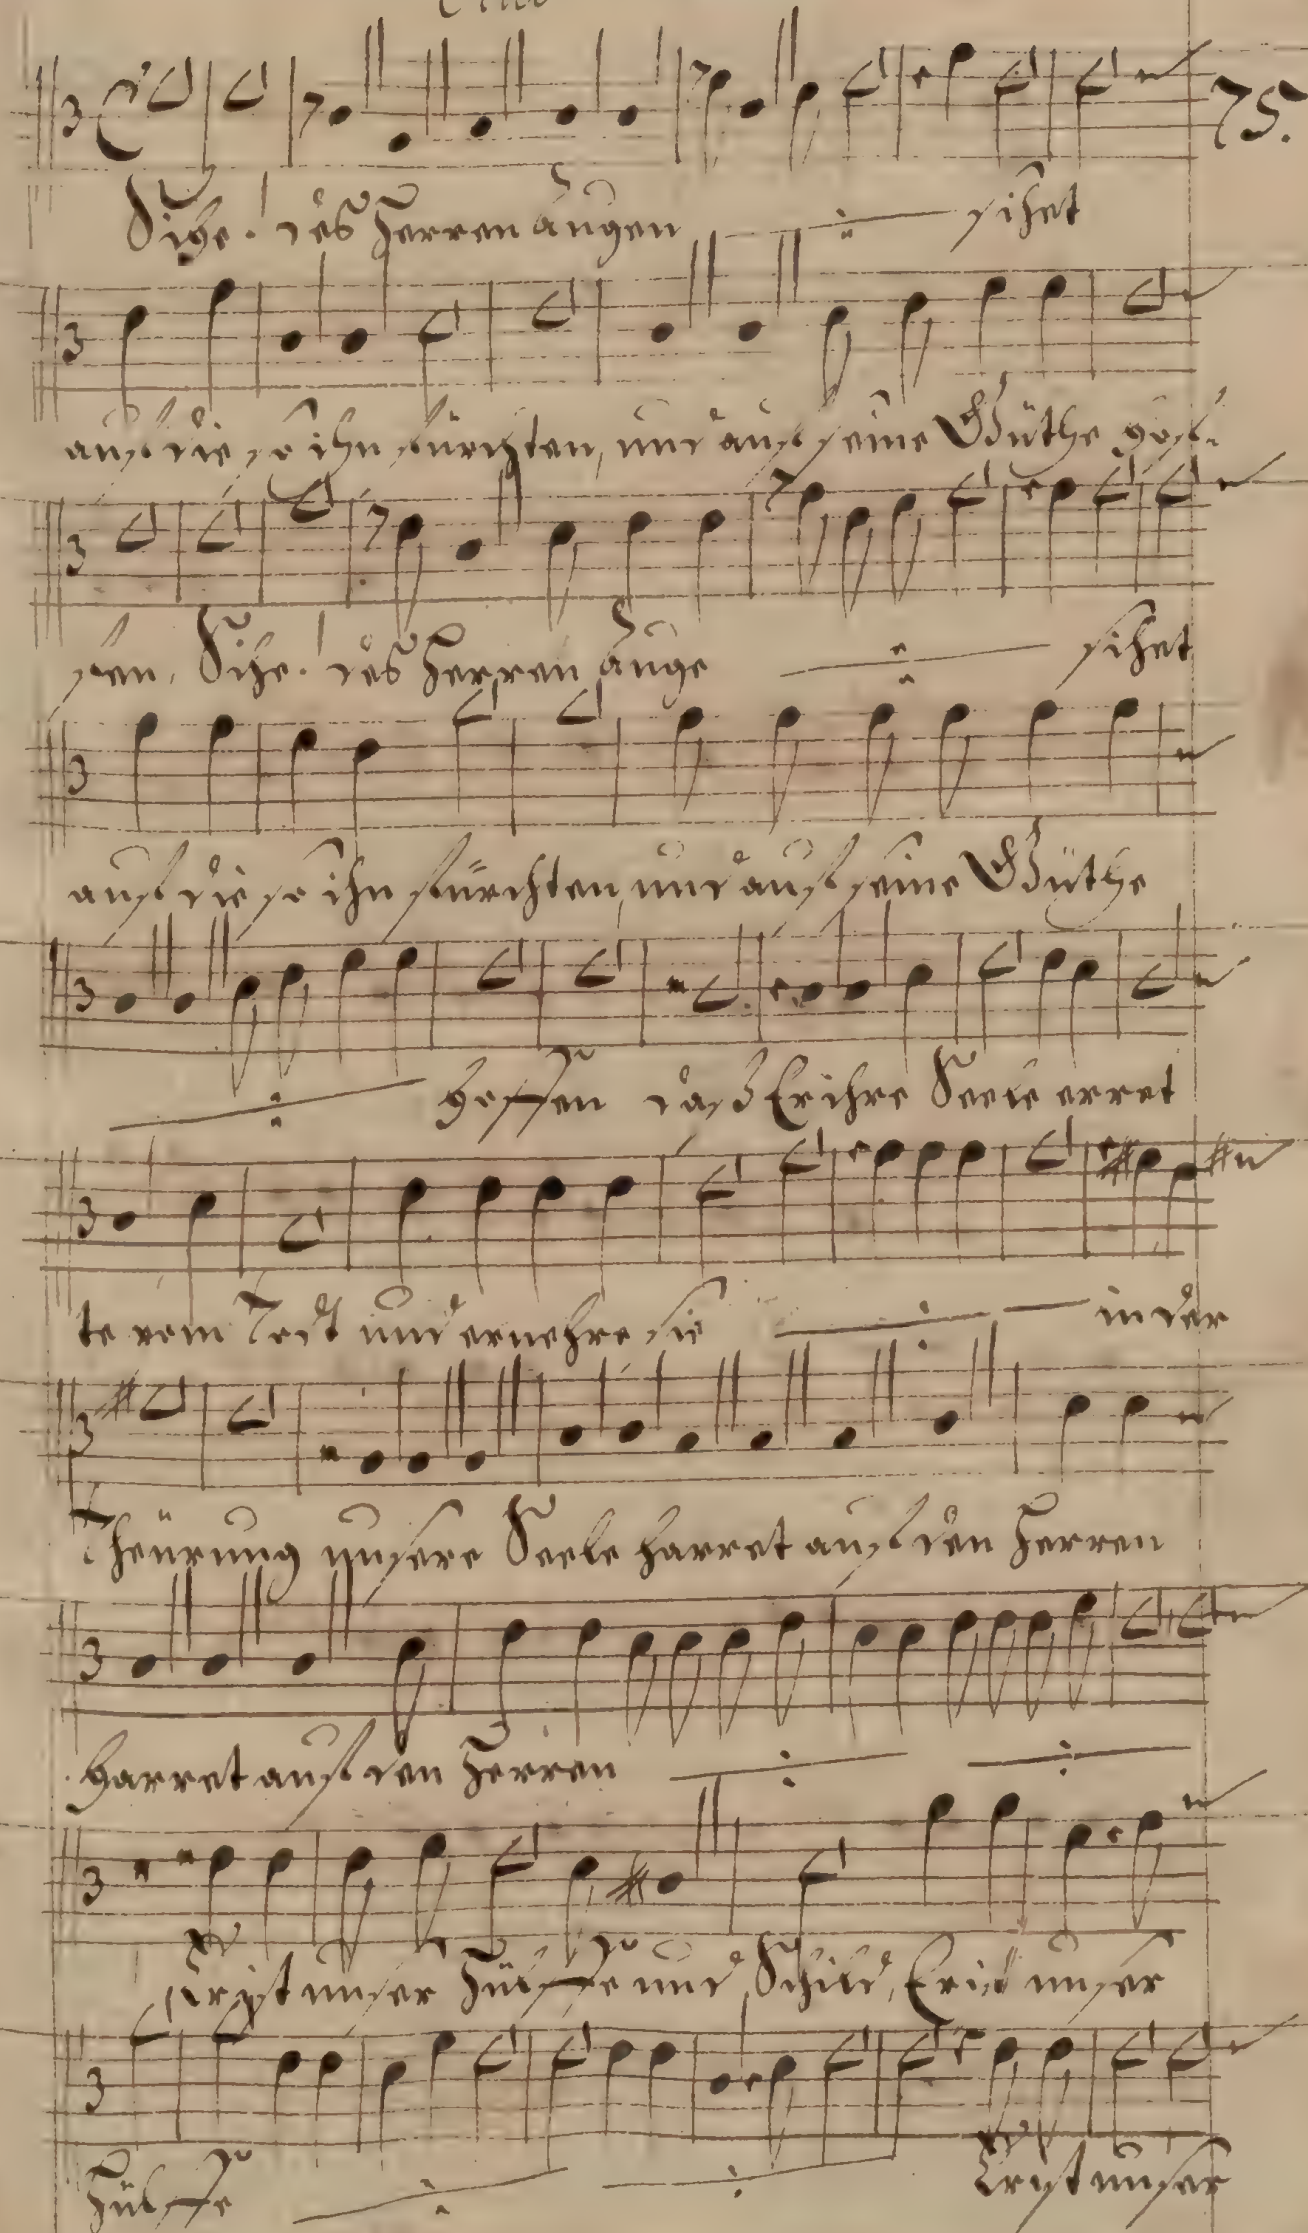 75.
Sihe! des Herren augen sihet
auf die so ihn fürchten, und auf seine Güthe hof-
fen, Sihe! des Herren auge sihet
auf die so ihn fürchten, und auf seine Güthe
hoffen daß Er ihre Seele erret
te vom Todt und ernehre sie in der
Theürung unsere Seele harret auf den Herren
harret auf den Herren
Er ist unser Hülffe und Schild, Er ist unser
Hülffe Er ist unser